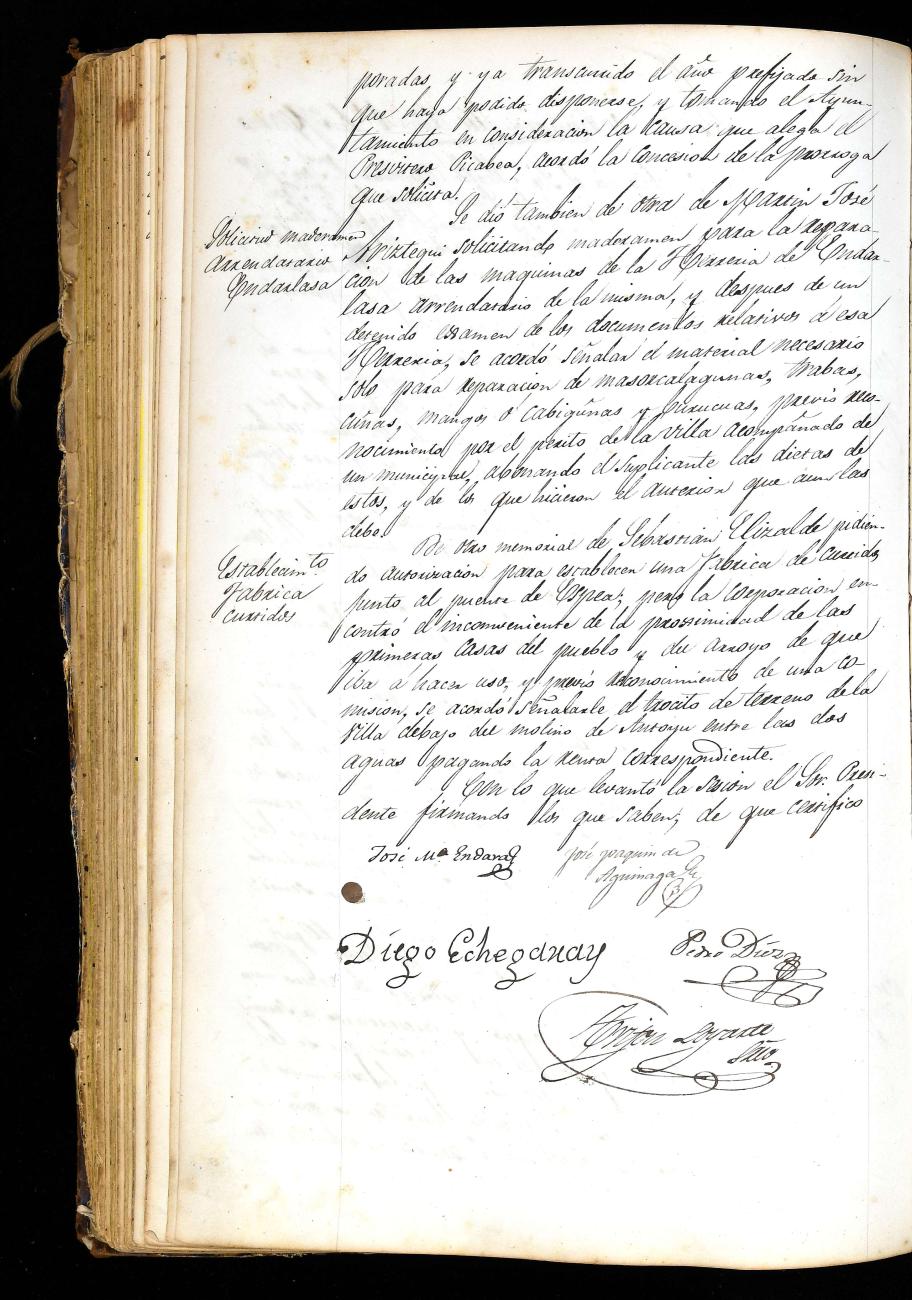 poradas y ya transcurrido el año prefijado sin
que haya podido disponerse, y tomando el Ayun-
tamiento en consideracion la causa que alega el
Presvitero Picabea, acordó la concesion de la prorroga
que solicita.
Solicitud maderamen
Arrendatario
Endarlasa
Se dió tambien de otra de Martin José
solicitando maderamen para la repara-
cion de las maquinas de la Herreria de Endar-
lasa arrendatario de la misma, y despues de un
detenido examen de los documentos relativos á esa
Herreria, se acordó señalar el material necesario
solo para reparacion de trabas,
cuñas, mangos ó y previo reco-
nocimiento por el perito de la villa acompañado de
un municipal, abonando el suplicante las dietas de
estos, y de los que hicieron el anterior que aun las
debe.
Establecimto.
Fabrica
curtidos
De otro memorial de Sebastian Elizalde pidien-
do autorizacion para establecer una fabrica de curtidos
junto al puente de pero la corporacion en-
contró el inconveniente de la prossimidad de las
primeras casas del pueblo y del arroyo de que
iba á hacer uso, y previo reconocimiento de una co-
mision, se acordó señalarle el trocito de terreno de la
villa debajo del molino de entre las dos
aguas pagando la renta correspondiente.
Con lo que levantó la sesion el Sor. Presi-
dente firmando los que saben, de que certifico
José Ma. Endara
José Joaquin de
Aguinaga
Diego Echegaray
Pedro Diez
Loyarte
Srio